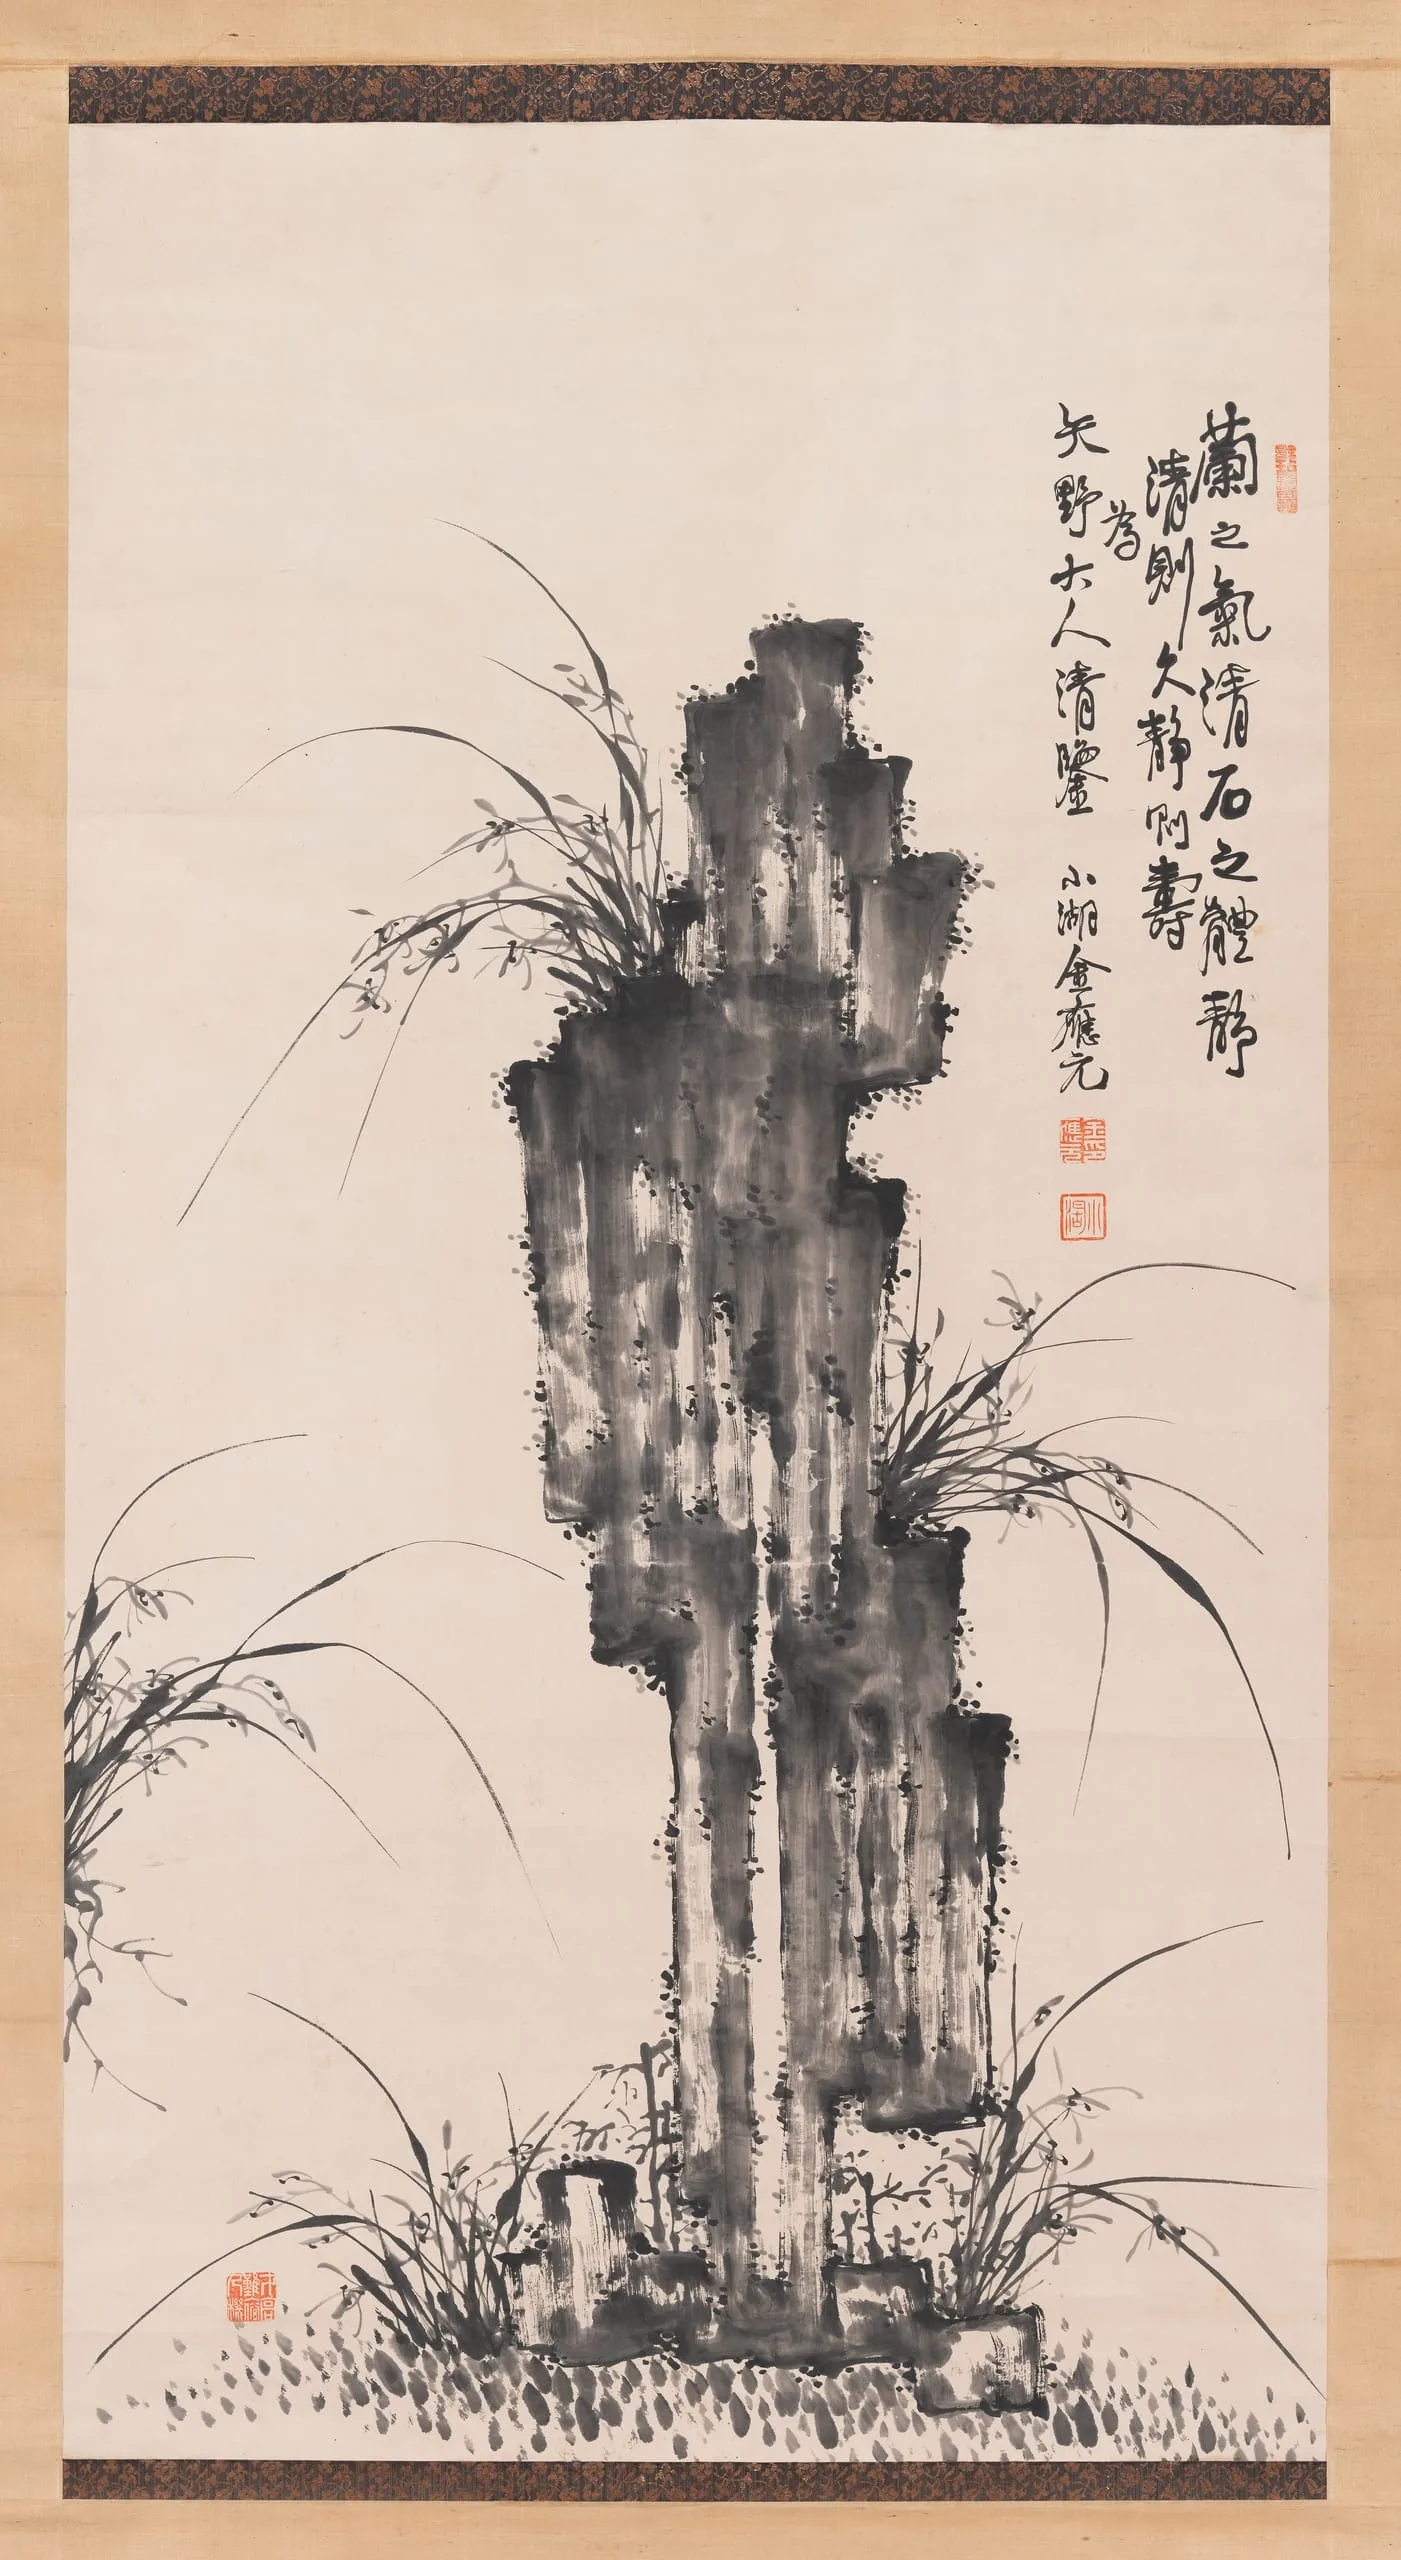 蘭之氣清石之體靜
清則久靜則壽
為
矢野大人清鑒 小湖金應元
金應元印
小湖